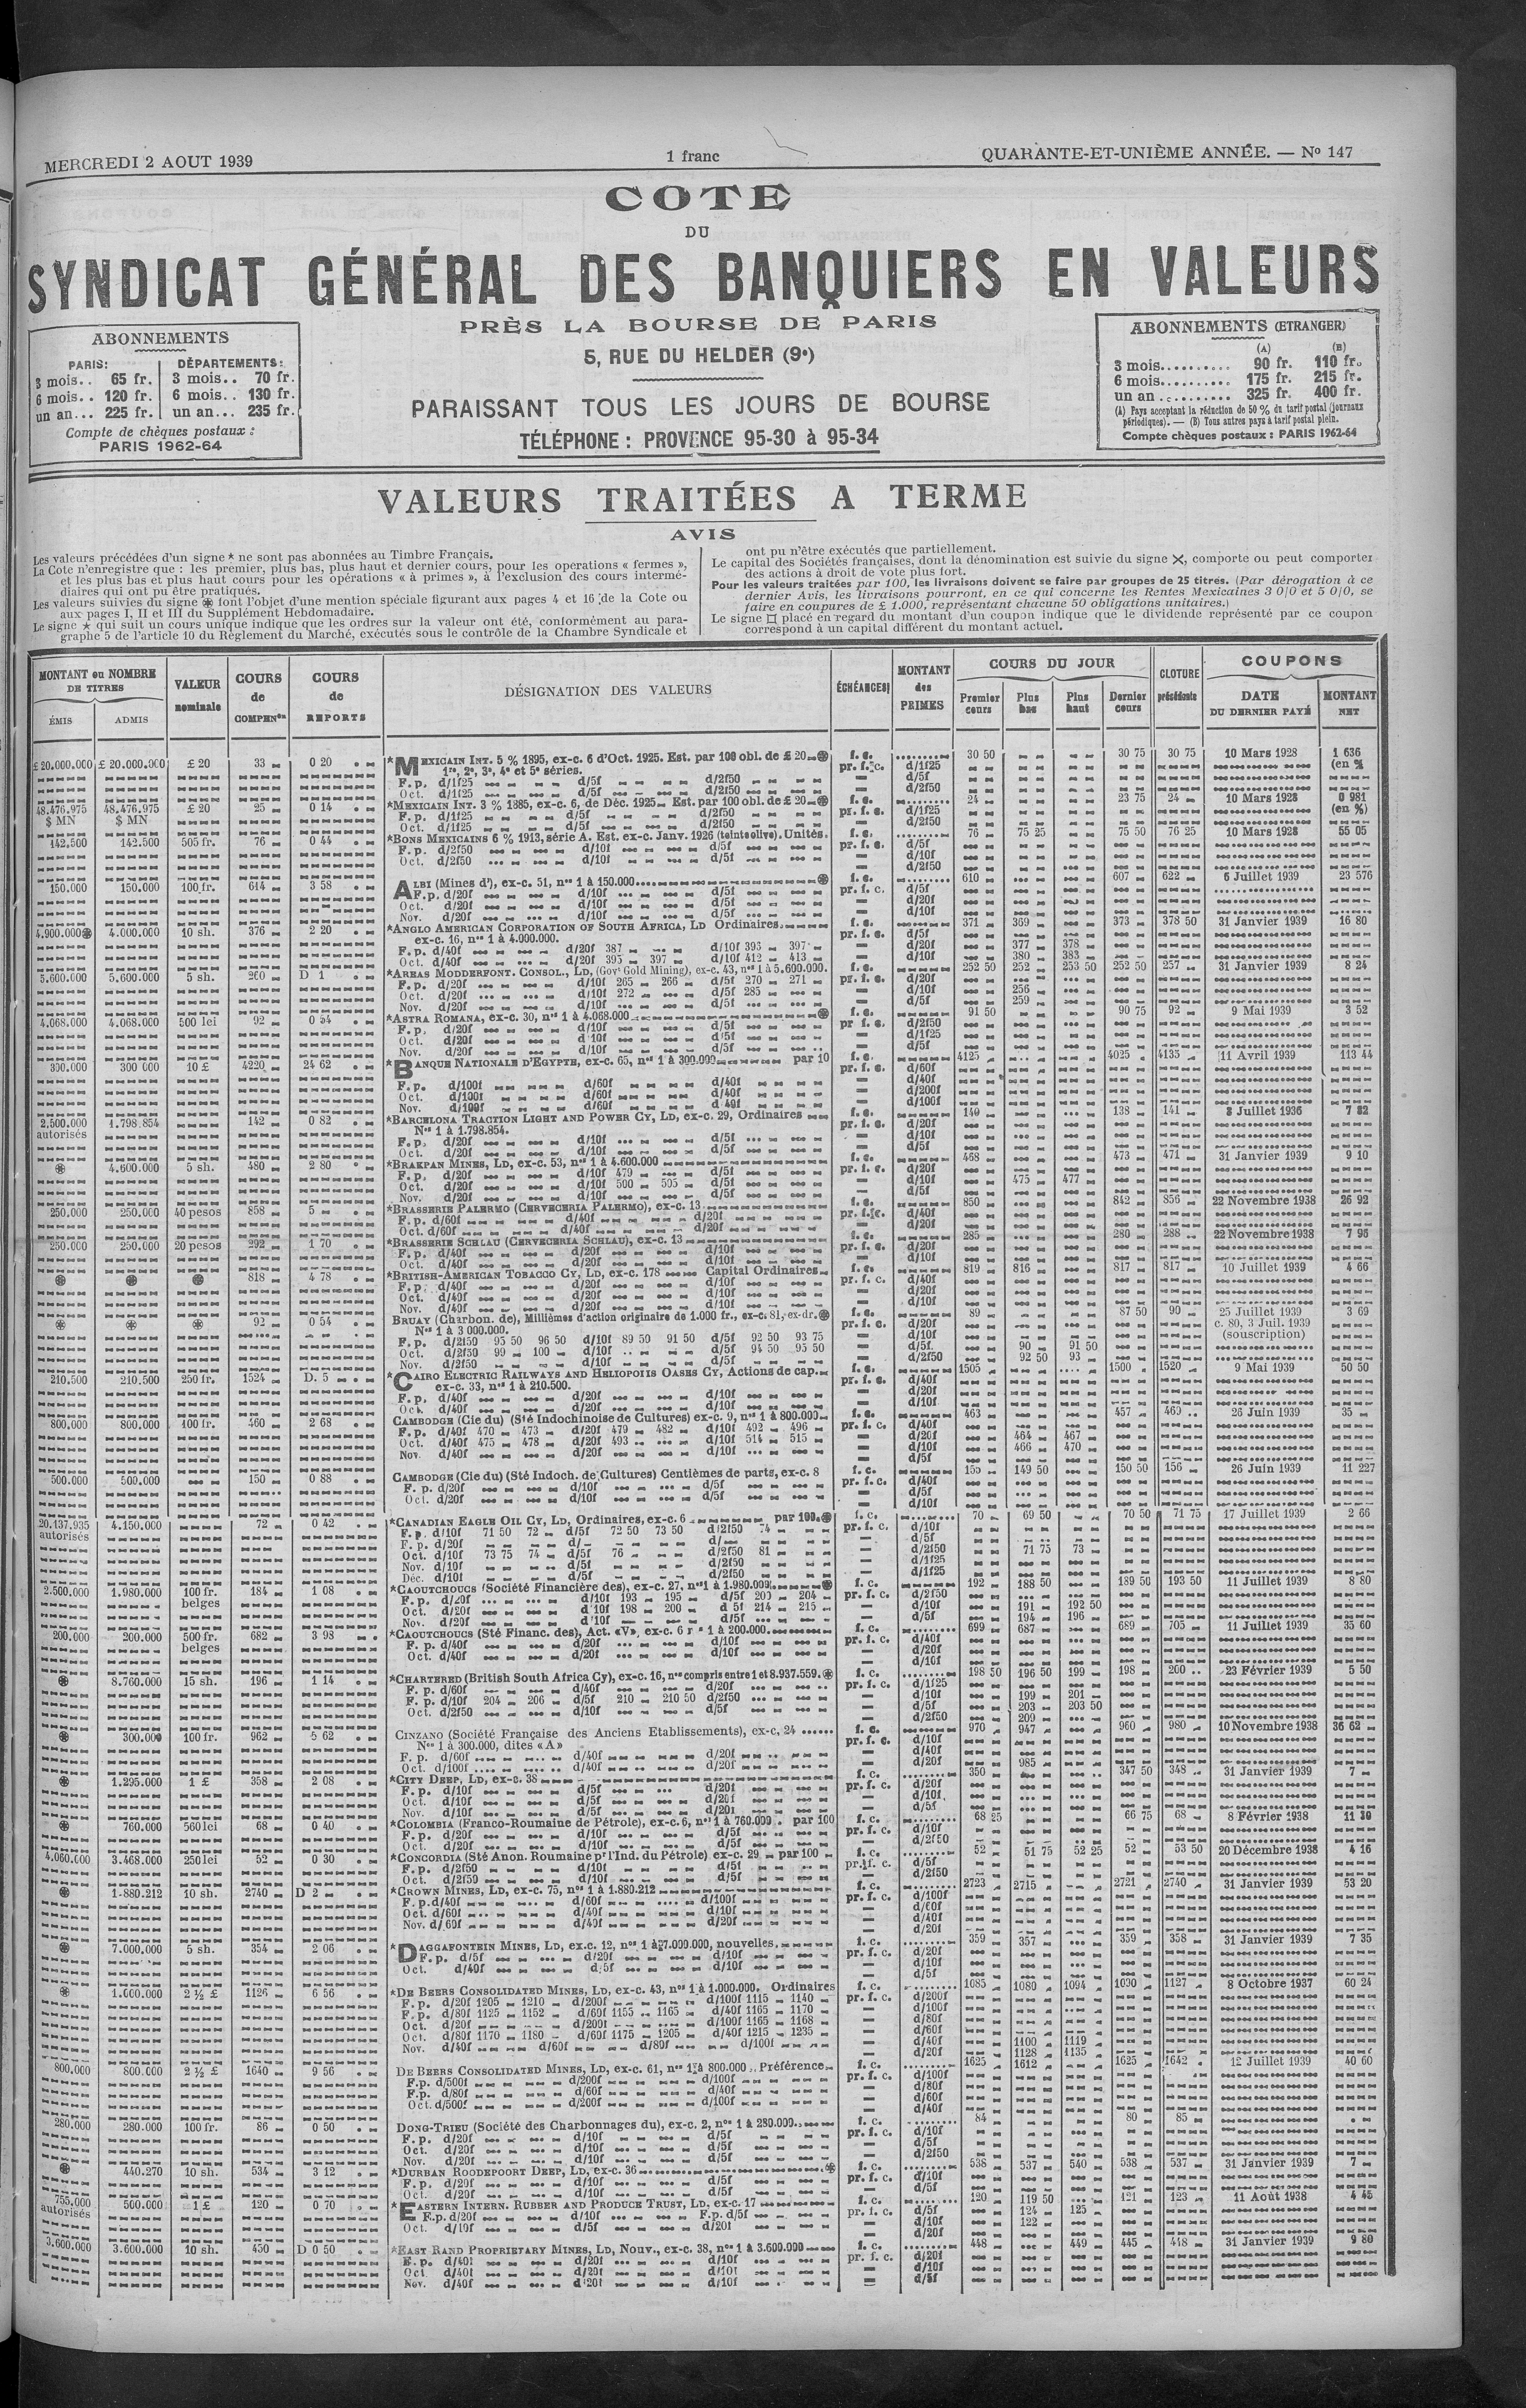 MERCREDI 2 AOUT 1939
1 franc
QUARANTE-ET-UNIÈME ANNÉE. — No 147
COTE
DU
SYNDICAT GÉNÉRAL DES BANQUIERS EN VALEURS
PRÈS LA BOURSE DE PARIS
5, RUE DU HELDER (9e)
PARAISSANT TOUS LES JOURS DE BOURSE
TÉLÉPHONE : PROVENCE 95-30 à 95-34
ABONNEMENTS
PARIS: DÉPARTEMENTS:
3 mois.. 65 fr. 3 mois.. 70 fr.
6 mois.. 120 fr. 6 mois.. 130 fr.
un an... 225 fr. un an... 235 fr.
Compte de chèques postaux :
PARIS 1962-64
ABONNEMENTS (ETRANGER)
(A) (B)
3 mois.......... 90 fr. 110 fr.
6 mois.......... 175 fr. 215 fr.
un an .......... 325 fr. 400 fr.
(A) Pays acceptant la réduction de 50 % du tarif postal (journaux
périodiques). — (B) Tous autres pays à tarif postal plein.
Compte chèques postaux : PARIS 1962-64
VALEURS TRAITÉES A TERME
AVIS
Les valeurs précédées d'un signe * ne sont pas abonnées au Timbre Français.
La Cote n'enregistre que : les premier, plus bas, plus haut et dernier cours, pour les operations « fermes »,
et les plus bas et plus haut cours pour les opérations « à primes », à l'exclusion des cours intermé-
diaires qui ont pu être pratiqués.
Les valeurs suivies du signe ⊛ font l'objet d'une mention spéciale figurant aux pages 4 et 16 de la Cote ou
aux pages I, II et III du Supplément Hebdomadaire.
Le signe ★ qui suit un cours unique indique que les ordres sur la valeur ont été, conformément au para-
graphe 5 de l'article 10 du Règlement du Marché, exécutés sous le contrôle de la Chambre Syndicale et
ont pu n'être exécutés que partiellement.
Le capital des Sociétés françaises, dont la dénomination est suivie du signe ✕, comporte ou peut comporter
des actions à droit de vote plus fort.
Pour les valeurs traitées par 100, les livraisons doivent se faire par groupes de 25 titres. (Par dérogation à ce
dernier Avis, les livraisons pourront, en ce qui concerne les Rentes Mexicaines 3 0/0 et 5 0/0, se
faire en coupures de £ 1.000, représentant chacune 50 obligations unitaires.)
Le signe □ placé en regard du montant d'un coupon indique que le dividende représenté par ce coupon
correspond à un capital différent du montant actuel.
MONTANT ou NOMBRE DE TITRES
ÉMIS ADMIS
VALEUR nominale
COURS de COMPENon
COURS de REPORTS
DÉSIGNATION DES VALEURS
ÉCHÉANCES
MONTANT des PRIMES
COURS DU JOUR
Premier cours Plus bas Plus haut Dernier cours
CLOTURE précédente
COUPONS
DATE DU DERNIER PAYÉ
MONTANT NET
£ 20.000.000 £ 20.000.000 £ 20 33 0 20 *MEXICAIN INT. 5 % 1895, ex-c. 6 d'Oct. 1925. Est. par 100 obl. de £ 20 ⊛ f. c. 30 50 30 75 30 75 10 Mars 1928 1 636
1re, 2e, 3e, 4e et 5e séries. pr. f. c. d/1f25 (en %
F. p. d/1f25 d/5f d/2f50 — d/5f
Oct. d/1f25 d/5f d/2f50 — d/2f50
48.476.975 48.476.975 £ 20 25 0 14 *MEXICAIN INT. 3 % 1885, ex-c. 6, de Déc. 1925 Est. par 100 obl. de £ 20 ⊛ f. c. 24 23 75 24 10 Mars 1928 0 981
$ MN $ MN F. p. d/1f25 d/5f d/2f50 pr. f. c. d/1f25 (en %)
Oct. d/1f25 d/5f d/2f50 — d/2f50
142.500 142.500 505 fr. 76 0 44 *BONS MEXICAINS 6 % 1913, série A. Est. ex-c. Janv. 1926 (teinte olive). Unités. f. c. 76 75 25 75 50 76 25 10 Mars 1928 55 05
F. p. d/2f50 d/10f d/5f pr. f. c. d/5f
Oct. d/2f50 d/10f d/5f — d/10f
— d/2f50
150.000 150.000 100 fr. 614 3 58 ALBI (Mines d'), ex-c. 51, nos 1 à 150.000 ⊛ f. c. 610 607 622 6 Juillet 1939 23 576
F. p. d/20f d/10f d/5f pr. f. c. d/5f
Oct. d/20f d/10f d/5f — d/20f
Nov. d/20f d/10f d/5f — d/10f
4.900.000⊛ 4.000.000 10 sh. 376 2 20 *ANGLO AMERICAN CORPORATION OF SOUTH AFRICA, LD Ordinaires f. c. 371 369 373 378 50 31 Janvier 1939 16 80
ex-c. 16, nos 1 à 4.000.000. pr. f. c. d/5f
F. p. d/40f d/20f 387 d/10f 393 397 — d/20f 377 378
Oct. d/40f d/20f 395 397 d/10f 412 413 — d/10f 380 383
5.600.000 5.600.000 5 sh. 260 D 1 *AREAS MODDERFONT. CONSOL., LD, (Govt Gold Mining), ex-c. 43, nos 1 à 5.600.000. f. c. 252 50 252 253 50 252 50 257 31 Janvier 1939 8 24
F. p. d/20f d/10f 265 266 d/5f 270 271 pr. f. c. d/20f
Oct. d/20f d/10f 272 d/5f 285 — d/10f 256
Nov. d/20f d/10f d/5f — d/5f 259
4.068.000 4.068.000 500 lei 92 0 54 *ASTRA ROMANA, ex-c. 30, nos 1 à 4.068.000 ⊛ f. c. 91 50 90 75 92 9 Mai 1939 3 52
F. p. d/20f d/10f d/5f pr f. c. d/2f50
Oct. d/20f d/10f d/5f — d/1f25
Nov. d/20f d/10f d/5f — d/5f
300.000 300 000 10 £ 4220 24 62 *BANQUE NATIONALE D'EGYPTE, ex-c. 65, nos 1 à 300.000 par 10 f. c. 4125 4025 4135 11 Avril 1939 113 44
pr. f. c. d/60f
F. p. d/100f d/60f d/40f — d/40f
Oct. d/100f d/60f d/40f — d/200f
Nov. d/100f d/60f d/40f — d/100f
2.500.000 1.798.854 142 0 82 *BARCELONA TRACTION LIGHT AND POWER CY, LD, ex-c. 29, Ordinaires f. c. 140 138 141 8 Juillet 1936 7 82
autorisés Nos 1 à 1.798.854. pr. f. c. d/20f
F. p. d/20f d/10f d/5f — d/10f
Oct. d/20f d/10f d/5f — d/5f
⊛ 4.600.000 5 sh. 480 2 80 *BRAKPAN MINES, LD, ex-c. 53, nos 1 à 4.600.000 f. c. 468 473 471 31 Janvier 1939 9 10
F. p. d/20f d/10f 479 d/5f pr. f. c. d/20f
Oct. d/20f d/10f 500 505 d/5f — d/10f 475 477
Nov. d/20f d/10f d/5f — d/5f
250.000 250.000 40 pesos 858 5 *BRASSERIE PALERMO (CERVECERIA PALERMO), ex-c. 13 f. c. 850 842 856 22 Novembre 1938 26 92
F. p. d/60f d/40f d/20f pr. f. c. d/40f
Oct. d/60f d/40f d/20f — d/20f
250.000 250.000 20 pesos 292 1 70 *BRASSERIE SCHLAU (CERVECERIA SCHLAU), ex-c. 13 f. c. 285 280 288 22 Novembre 1938 7 95
F. p. d/40f d/20f d/10f pr. f. c. d/20f
Oct. d/40f d/20f d/10f — d/10f
⊛ ⊛ ⊛ 818 4 78 *BRITISH-AMERICAN TOBACCO CY, LD, ex-c. 178 Capital Ordinaires f. c. 819 816 817 817 10 Juillet 1939 4 66
F. p. d/40f d/20f d/10f pr. f. c. d/40f
Oct. d/40f d/20f d/10f — d/20f
Nov. d/40f d/20f d/10f — d/10f
⊛ ⊛ ⊛ 92 0 54 BRUAY (Charbon. de), Millièmes d'action originaire de 1.000 fr., ex-c. 81, ex-dr. ⊛ f. c. 89 87 50 90 25 Juillet 1939 3 69
Nos 1 à 3 000.000. pr. f. c. d/20f c. 80, 3 Juil. 1939
F. p. d/2f50 95 50 96 50 d/10f 89 50 91 50 d/5f 92 50 93 75 — d/10f (souscription)
Oct. d/2f50 99 100 d/10f d/5f 94 50 95 50 — d/5f 90 91 50
Nov. d/2f50 d/10f d/5f — d/2f50 92 50 93
210.500 210.500 250 fr. 1524 D. 5 *CAIRO ELECTRIC RAILWAYS AND HELIOPOLIS OASES CY, Actions de cap. f. c. 1505 1500 1520 9 Mai 1939 50 50
ex-c. 33, nos 1 à 210.500. pr. f. c. d/40f
F. p. d/40f d/20f d/10f — d/20f
Oct. d/40f d/20f d/10f — d/10f
800.000 800.000 100 fr. 460 2 68 CAMBODGE (Cie du) (Sté Indochinoise de Cultures) ex-c. 9, nos 1 à 800.000 f. c. 463 457 469 26 Juin 1939 35
F. p. d/40f 470 473 d/20f 479 482 d/10f 492 496 pr. f. c. d/40f
Oct. d/40f 475 478 d/20f 493 d/10f 514 515 — d/20f 464 467
Nov. d/40f d/20f d/10f — d/10f 466 470
— d/5f
500.000 500.000 150 0 88 CAMBODGE (Cie du) (Sté Indoch. de Cultures) Centièmes de parts, ex-c. 8 f. c. 155 149 50 150 50 156 26 Juin 1939 11 227
F. p. d/20f d/10f d/5f pr. f. c. d/40f
Oct. d/20f d/10f d/5f — d/5f
— d/10f
20.137.935 4.150.000 72 0 42 *CANADIAN EAGLE OIL CY, LD, Ordinaires, ex-c. 6 par 100 ⊛ f. c. 70 69 50 70 50 71 75 17 Juillet 1939 2 66
autorisés F. p. d/10f 71 50 72 d/5f 72 50 73 50 d/2f50 74 pr. f. c. d/10f
F. p. d/20f d/ d/ — d/5f
Oct. d/10f 73 75 74 d/5f 76 d/2f50 81 — d/2f50 71 75 73
Nov. d/10f d/5f d/2f50 — d/1f25
Déc. d/10f d/5f d/2f50 — d/1f25
2.500.000 1.980.000 100 fr. 184 1 08 *CAOUTCHOUCS (Société Financière des), ex-c. 27, nos 1 à 1.980.000 ⊛ f. c. 192 188 50 189 50 193 50 11 Juillet 1939 8 80
belges F. p. d/20f d/10f 193 195 d/5f 203 204 pr. f. c. d/2f50
Oct. d/20f d/10f 198 200 d/5f 214 215 — d/10f 191 192 50
Nov. d/20f d/10f d/5f — d/5f 194 196
200.000 200.000 500 fr. 682 3 98 *CAOUTCHOUCS (Sté Financ. des), Act. «V», ex-c. 6 1 à 200.000 f. c. 699 687 689 705 11 Juillet 1939 35 60
belges F. p. d/40f d/20f d/10f pr. f. c. d/40f
Oct. d/40f d/20f d/10f — d/20f
— d/10f
⊛ 8.760.000 15 sh. 196 1 14 *CHARTERED (British South Africa Cy), ex-c. 16, nos compris entre 1 et 8.937.559. ⊛ f. c. 198 50 196 50 199 198 200 23 Février 1939 5 50
F. p. d/60f d/40f d/20f pr. f. c. d/1f25
F. p. d/10f 204 206 d/5f 210 210 50 d/2f50 — d/10f 199 201
Oct. d/2f50 d/10f d/5f — d/5f 203 203 50
— d/2f50 209
⊛ 300.000 100 fr. 962 5 62 CINZANO (Société Française des Anciens Etablissements), ex-c. 24 f. c. 970 947 960 980 10 Novembre 1938 36 62
Nos 1 à 300.000, dites «A» pr. f. c. d/10f
F. p. d/60f d/40f d/20f — d/40f
Oct. d/100f d/40f d/20f — d/20f 985
⊛ 1.295.000 1 £ 358 2 08 *CITY DEEP, LD, ex-c. 38 f. c. 350 347 50 348 31 Janvier 1939 7
F. p. d/10f d/5f d/20f pr. f. c. d/20f
Oct. d/10f d/5f d/20f — d/10f
Nov. d/10f d/5f d/20f — d/5f
⊛ 760.000 560 lei 68 0 40 *COLOMBIA (Franco-Roumaine de Pétrole), ex-c. 6, nos 1 à 760.000 par 100 f. c. 68 25 66 75 68 8 Février 1938 11 10
F. p. d/20f d/10f d/5f pr. f. c. d/10f
Oct. d/20f d/10f d/5f — d/2f50
4.060.000 3.468.000 250 lei 52 0 30 *CONCORDIA (Sté Anon. Roumaine pr l'Ind. du Pétrole) ex-c. 29 par 100 f. c. 52 51 75 52 25 52 53 50 20 Décembre 1938 4 16
F. p. d/2f50 d/10f d/5f pr. f. c. d/5f
Oct. d/2f50 d/10f d/5f — d/2f50
⊛ 1.880.212 10 sh. 2740 D 2 *CROWN MINES, LD, ex-c. 75, nos 1 à 1.880.212 f. c. 2723 2715 2721 2740 31 Janvier 1939 53 20
F. p. d/40f d/60f d/100f pr. f. c. d/100f
Oct. d/60f d/40f d/10f — d/60f
Nov. d/60f d/40f d/20f — d/40f
— d/20f
⊛ 7.000.000 5 sh. 354 2 06 *DAGGAFONTEIN MINES, LD, ex.c. 12, nos 1 à 7.000.000, nouvelles f. c. 359 357 359 358 31 Janvier 1939 7 35
F. p. d/5f d/20f d/10f pr. f. c. d/20f
Oct. d/40f d/5f d/10f — d/10f
— d/5f
⊛ 1.000.000 2 ½ £ 1126 6 56 *DE BEERS CONSOLIDATED MINES, LD, ex-c. 43, nos 1 à 1.000.000. Ordinaires f. c. 1085 1080 1094 1090 1127 8 Octobre 1937 60 24
F. p. d/20f 1205 1210 d/200f d/100f 1115 1140 pr. f. c. d/200f
F. p. d/80f 1125 1152 d/60f 1155 1165 d/40f 1165 1170 — d/100f
Oct. d/20f d/200f d/100f 1165 1168 — d/80f
Oct. d/80f 1170 1180 d/60f 1175 1205 d/40f 1215 1235 — d/60f
Nov. d/40f d/60f d/80f d/100f — d/40f 1100 1119
— d/20f 1128 1135
800.000 800.000 2 ½ £ 1640 9 56 DE BEERS CONSOLIDATED MINES, LD, ex-c. 61, nos 1 à 800.000 Préférence f. c. 1625 1612 1625 1642 12 Juillet 1939 40 60
F. p. d/500f d/200f d/100f pr. f. c. d/100f
F. p. d/80f d/60f d/40f — d/80f
Oct. d/500f d/200f d/100f — d/60f
— d/40f
280.000 280.000 100 fr. 86 0 50 DONG-TRIEU (Société des Charbonnages du), ex-c. 2, nos 1 à 280.000 f. c. 84 80 85
F. p. d/20f d/10f d/5f pr. f. c. d/10f
Oct. d/20f d/10f d/5f — d/5f
Nov. d/20f d/10f d/5f — d/2f50
⊛ 440.270 10 sh. 534 3 12 *DURBAN ROODEPOORT DEEP, LD, ex-c. 36 ⊛ f. c. 538 537 540 538 537 31 Janvier 1939 7
F. p. d/20f d/10f d/5f pr. f. c. d/10f
Oct. d/20f d/10f d/5f — d/5f
755.000 500.000 1 £ 120 0 70 *EASTERN INTERN. RUBBER AND PRODUCE TRUST, LD, ex-c. 17 f. c. 120 119 50 121 123 11 Août 1938 4 45
autorisés F. p. d/20f d/10f F. p. d/5f pr. f. c. d/5f 124 125
Oct. d/10f d/5f d/20f — d/10f 122
— d/20f
3.600.000 3.600.000 10 sh. 450 D 0 50 *EAST RAND PROPRIETARY MINES, LD, Nouv., ex-c. 38, nos 1 à 3.600.000 f. c. 448 449 445 448 31 Janvier 1939 9 80
F. p. d/40f d/20f d/10f pr. f. c. d/20f
Oct. d/40f d/20f d/10f — d/10f
Nov. d/40f d/20f d/10f — d/5f